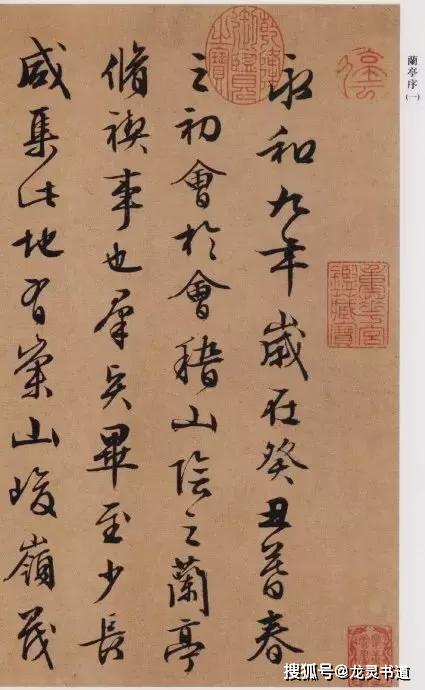 蘭亭序
(一)
永和九年歲在癸丑暮春
之初會於會稽山陰之蘭亭
脩禊事也羣賢畢至少長
咸集此地有崇山峻嶺茂
乾隆御覽之寶
重華宮鑑藏寶
搜狐号@龙灵书道